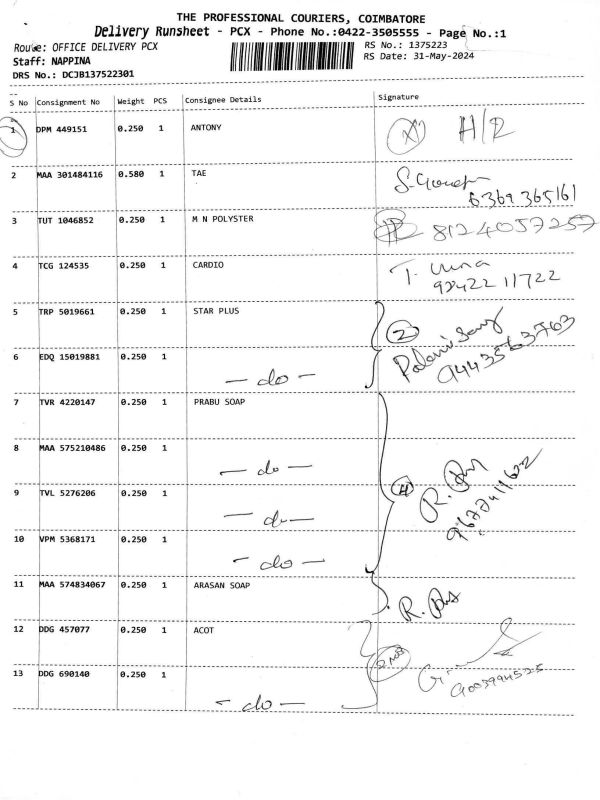 THE PROFESSIONAL COURIERS, COIMBATORE
Delivery Runsheet - PCX - Phone No.:0422-3505555 - Page No.:1
Route: OFFICE DELIVERY PCX
RS No.: 1375223
Staff: NAPPINA
RS Date: 31-May-2024
DRS No.: DCJB137522301
S No Consignment No Weight PCS Consignee Details Signature
1 DPM 449151 0.250 1 ANTONY H/R
2 MAA 301484116 0.580 1 TAE
6369 365161
3 TUT 1046852 0.250 1 M N POLYSTER 8124057257
4 TCG 124535 0.250 1 CARDIO
98422 11722
5 TRP 5019661 0.250 1 STAR PLUS 2
9443563763
6 EDQ 15019881 0.250 1
- do -
7 TVR 4220147 0.250 1 PRABU SOAP
8 MAA 575210486 0.250 1
- do -
4
9 TVL 5276206 0.250 1
- do -
10 VPM 5368171 0.250 1
- do -
11 MAA 574834067 0.250 1 ARASAN SOAP
12 DDG 457077 0.250 1 ACOT
13 DDG 690140 0.250 1
- do -